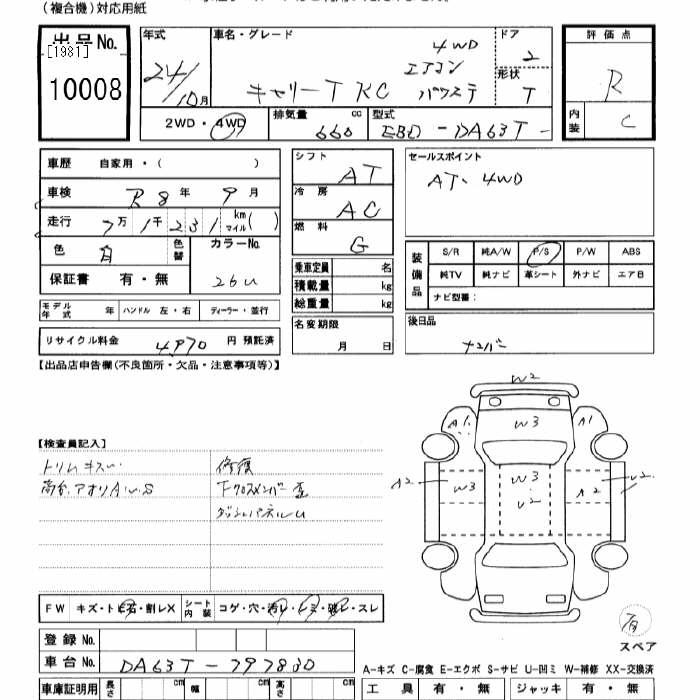 (複合機)対応用紙
出品No.
[1981]
10008
年式
24/10月
車名・グレード
キャリーT KC
4WD
エアコン
パワステ
ドア
2
形状
T
評価点
R
内装
C
2WD・4WD
排気量
660
cc
型式
EBD-DA63T-
車歴
自家用・( )
車検
R8年9月
走行
7万1千231
km
マイル( )
色
白
色替
カラーNo.
26U
保証書
有・無
モデル年式
年
ハンドル 左・右
ディーラー・並行
リサイクル料金
4,970
円 預託済
シフト
AT
冷房
AC
燃料
G
乗車定員
名
積載量
kg
総重量
kg
名変期限
月 日
セールスポイント
AT、4WD
装備品
S/R
純A/W
P/S
P/W
ABS
純TV
純ナビ
革シート
外ナビ
エアB
ナビ型番:
後日品
ナンバー
【出品店申告欄(不良箇所・欠品・注意事項等)】
【検査員記入】
トリムキズ
荷台、アオリA.W.S
修復
下クロスメンバー歪
ダッシュパネルU
W2
A1
W3
A1
A2
W3
W3
U2
A2
U2
有
スペア
FW
キズ・トビ石・割レX
シート内装
コゲ・穴・汚レ・シミ・破レ・スレ
登録No.
車台No.
DA63T-797830
A-キズ C-腐食 E-エクボ S-サビ U-凹ミ W-補修 XX-交換済
車庫証明用
長さ
cm
幅
cm
高さ
cm
工具
有・無
ジャッキ
有・無